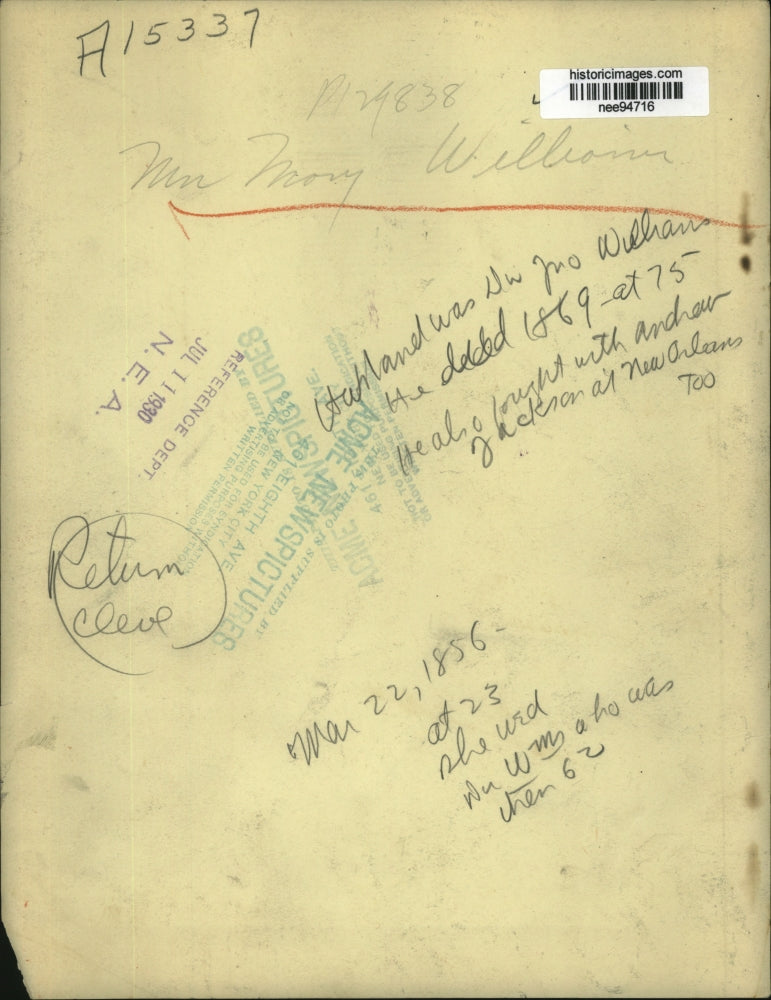 A15337
historicimages.com
nee94716
P129838
Mrs Mary Williams
Husband was Dr Jno Williams
He died 1869 at 75
He also fought with Andrew
Jackson at New Orleans
Too
N. E. A.
JUL 11 1930
REFERENCE DEPT.
ACME NEWSPICTURES
461 EIGHTH AVE
NEW YORK CITY
NOT TO BE USED FOR SYNDICATION
OR ADVERTISING PURPOSES WITHOUT
WRITTEN PERMISSION
Return
Cleve
Mar 22, 1856-
at 23
she wed
Dr Wms who was
then 62